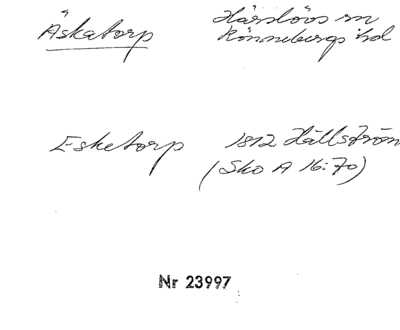 Äskatorp Härslövs sn
Rönnebergs hd
Esketorp 1812 Hällström
(Sko A 16:70)
Nr 23997